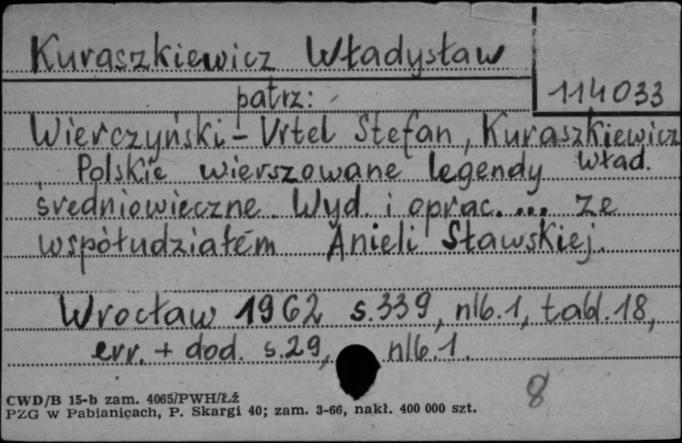 Kuraszkiewicz Władysław
114033
patrz:
Wierczyński - Vrtel Stefan, Kuraszkiewicz
Wład.
Polskie wierszowane legendy
średniowieczne. Wyd. i oprac. ... ze
współudziałem Anieli Sławskiej.
Wrocław 1962 s.339, nlb.1, tabl.18,
err. + dod. s.29, nlb.1.
8
CWD/B 15-b zam. 4065/PWH/Łż
PZG w Pabianicach, P. Skargi 40; zam. 3-66, nakł. 400 000 szt.